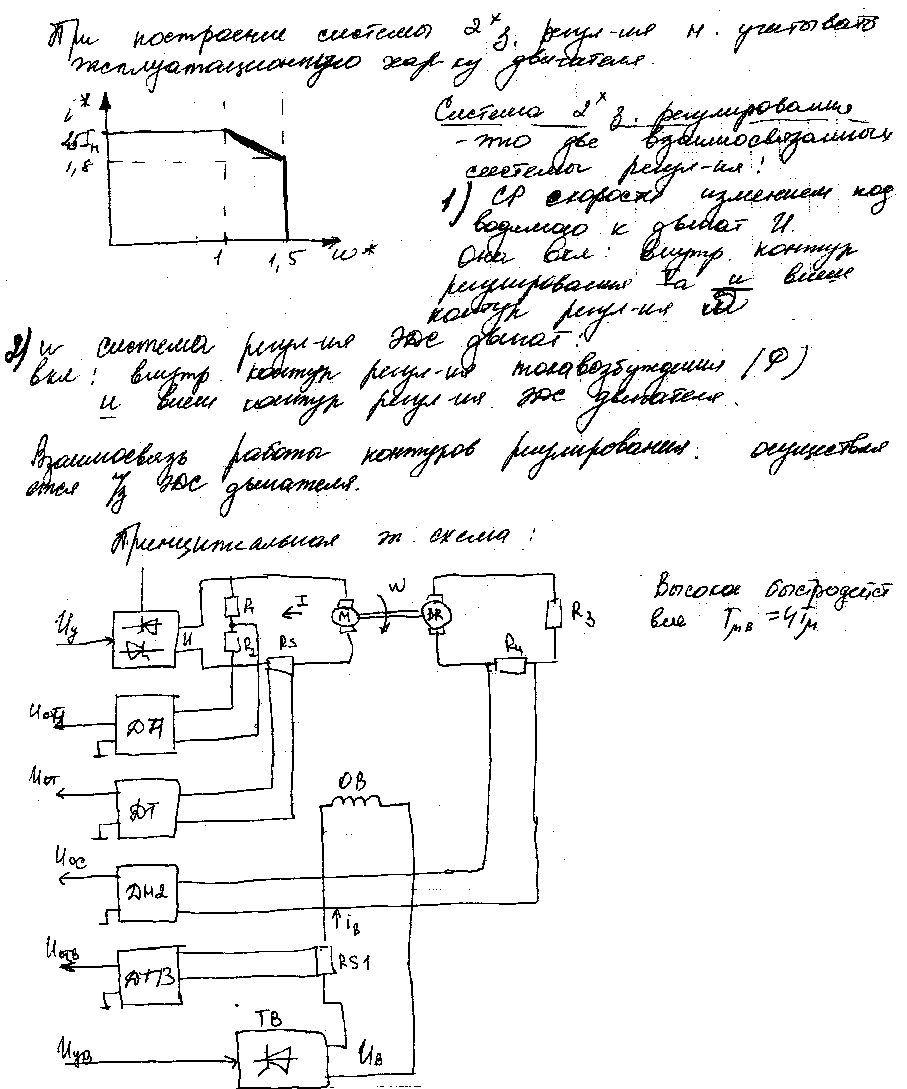 При построение системы 2ˣ з. регул-ия н. учитывать
эксплуатационную хар-ку двигателя.
i*
1,8
1
1,5
w*
Система 2ˣ з. регулирования
- это две взаимосвязанных
системы регул-ия:
1) СР скорости изменением под
водимого к двигат U.
Она вкл: внутр контур
регулирования Iа и внеш
контур регул-ия
2) и система регул-ия ЭДС двигат.
вкл: внутр контур регул-ия тока возбуждения (Ф)
и внеш контур регул-ия ЭДС двигателя.
Взаимосвязь работы контуров регулирования осуществля
ется ч/з ЭДС двигателя.
Принципиальная эл. схема:
Высокое быстродейст
вие Tμв = 4Tμ
Uу
U
R1
R2
RS
I
M
w
BR
R3
R4
ДН
Uот
ДТ
Uос
ДН2
Uотв
ДТВ
ОВ
iв
RS1
ТВ
Uув
Uв